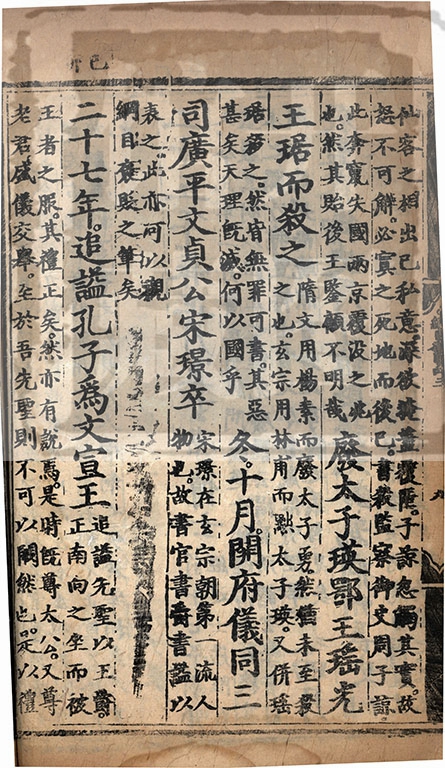 己卯
仙客之相出己私意深欲掩蓋覆匿。子諒忽觸其實。故
怒不可解。必寘之死地而後已。書殺監察御史周子諒。
此奔竄失國兩京覆没之兆
也。然其貽後王鑒顧不明哉
廢太子瑛鄂王瑶光
王琚而殺之
隋文用楊素而廢太子勇。然猶未至殺
之也。玄宗用林甫而黜太子瑛。又併瑶
琚殺之。然皆無罪可書。其惡
甚矣天理旣滅。何以國乎
冬。十月。開府儀同三
司廣平文貞公宋璟卒
宋璟在玄宗朝第一流人
物也。故書官書爵書謚以
表之。此亦可以觀
綱目褒貶之筆矣
二十七年。追謚孔子爲文宣王
追謚先聖以王爵。
正南向之坐而被
王者之服。其禮正矣。然亦有說焉。是時旣尊太公。又尊
老君威儀交舉。至於吾先聖則不可以闕然也。是以禮